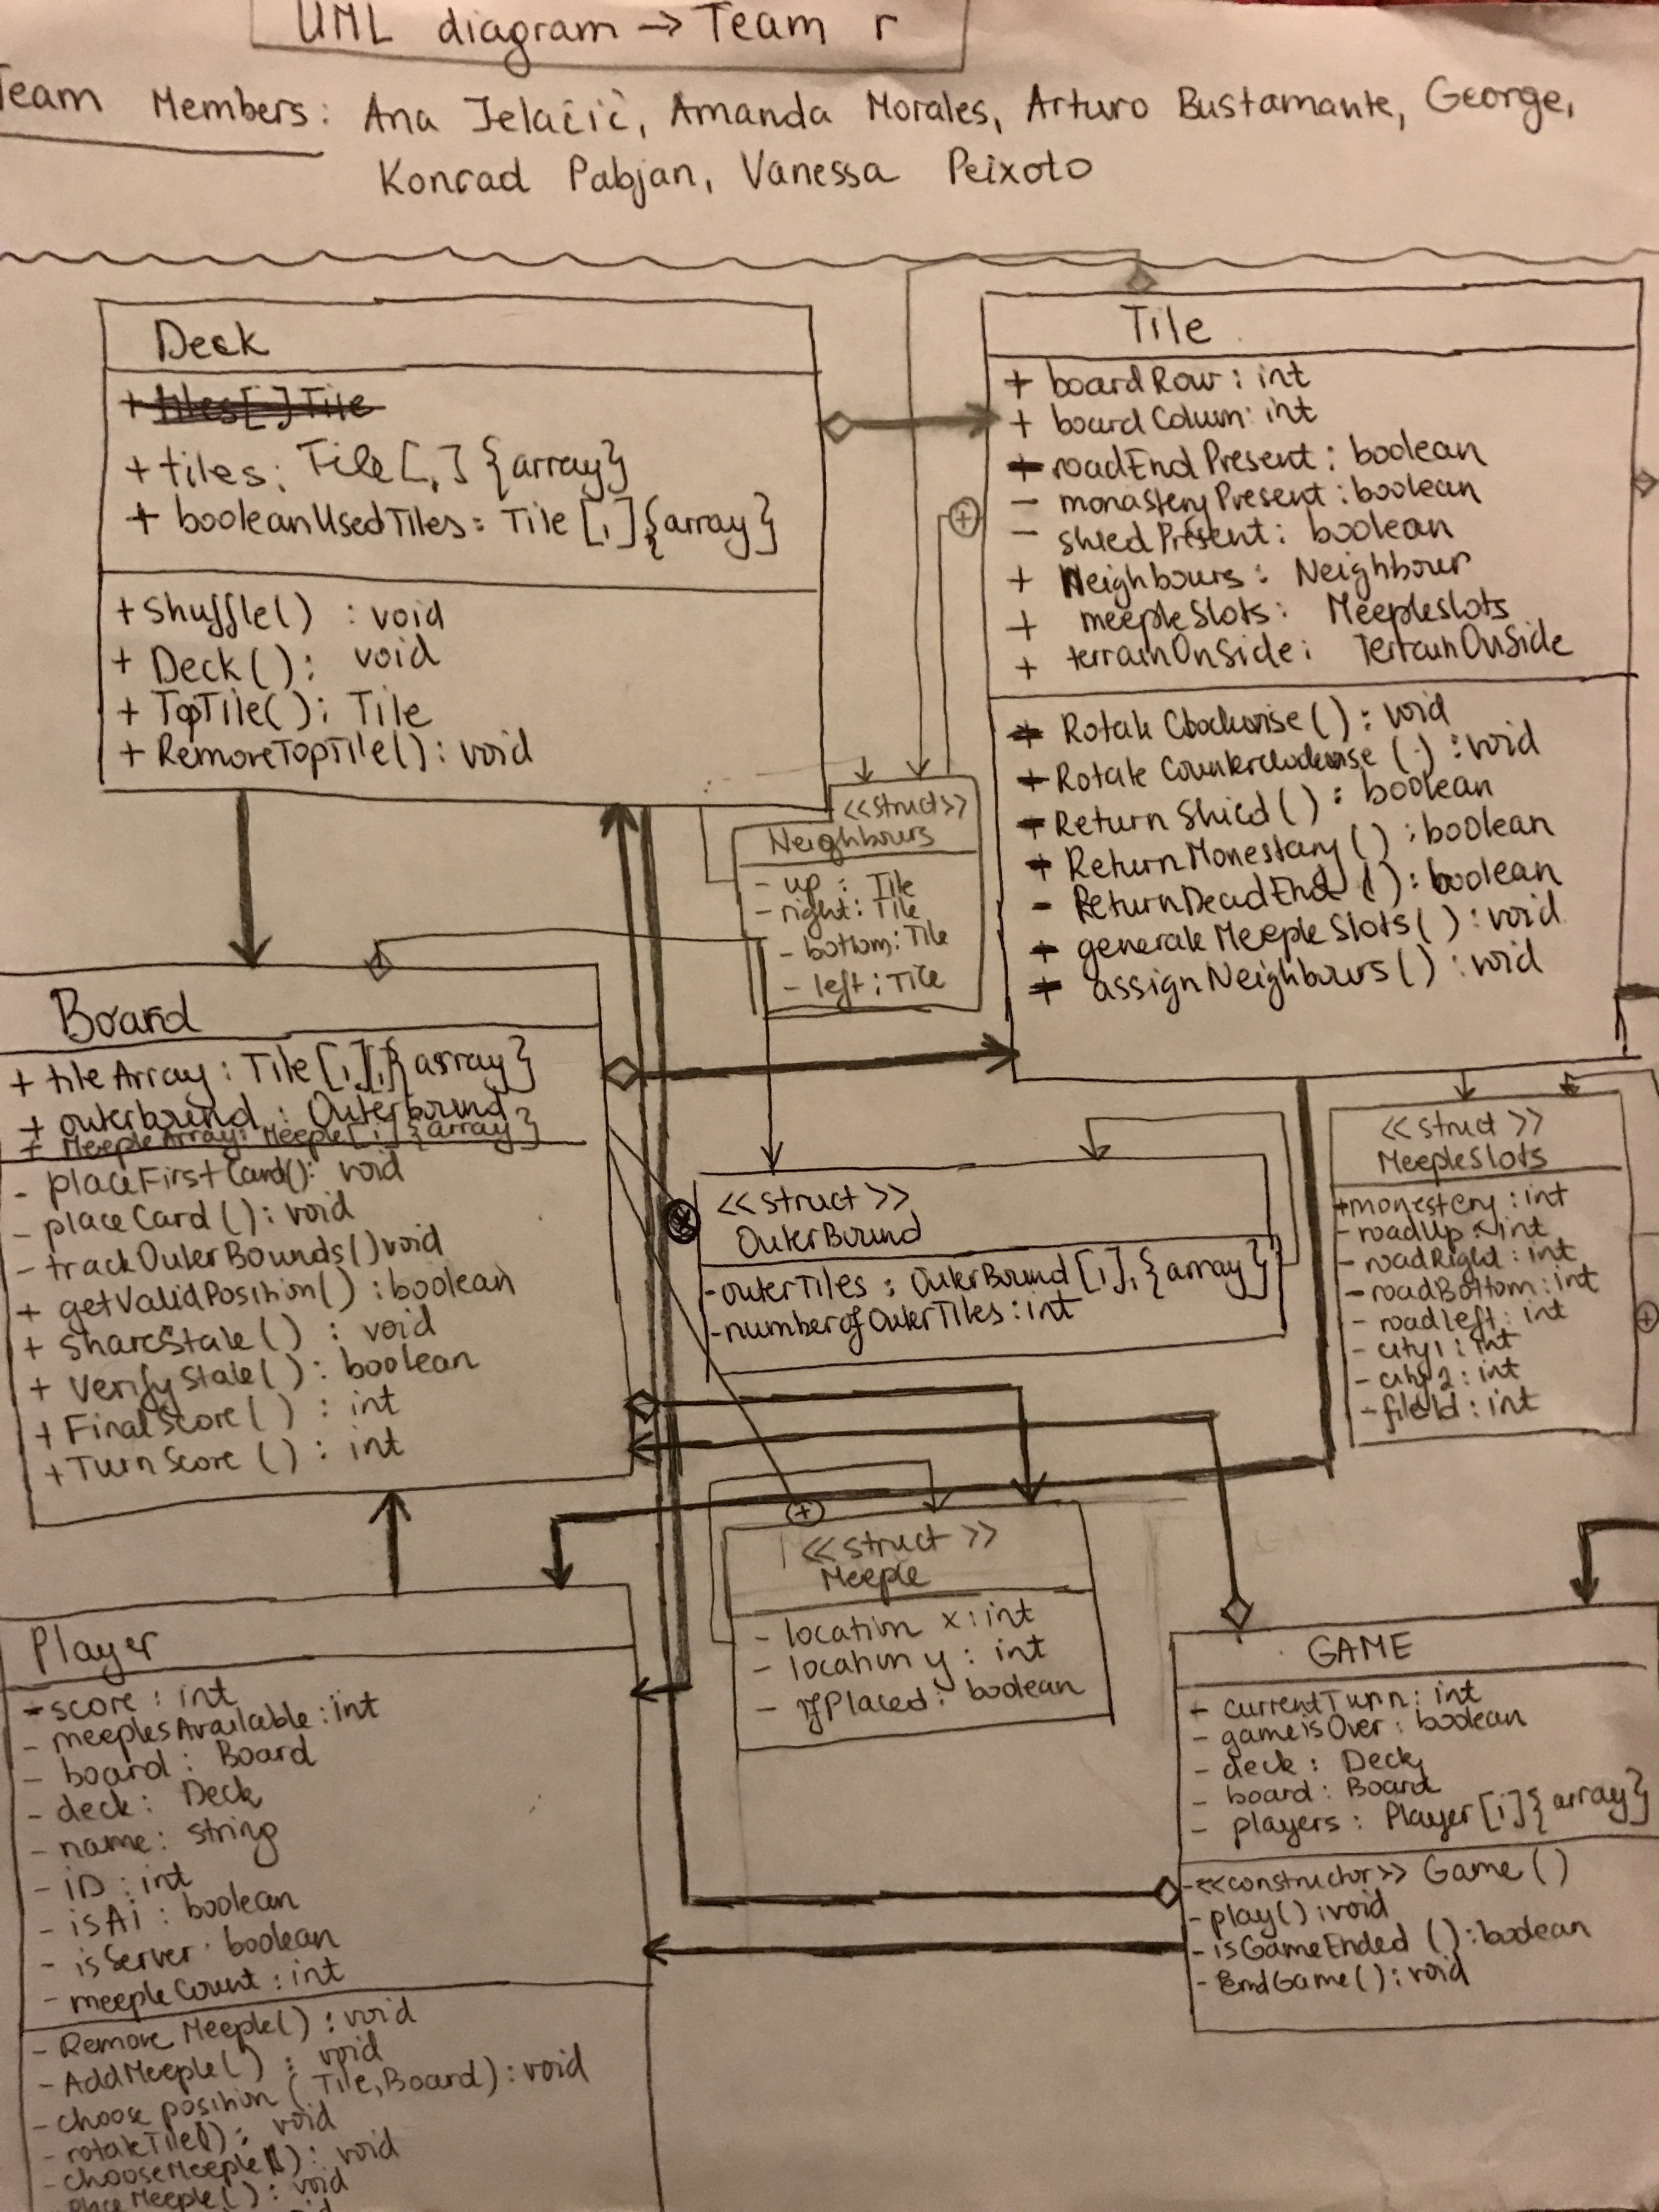 UML diagram → Team r
Team Members: Ana Jelačić, Amanda Morales, Arturo Bustamante, George,
Konrad Pabjan, Vanessa Peixoto
Deck
+ tiles[,] Tile
+ tiles: Tile[,] {array}
+ booleanUsedTiles: Tile[,]{array}
+ Shuffle() : void
+ Deck(): void
+ TopTile(): Tile
+ RemoveTopTile(): void
Tile
+ boardRow: int
+ boardColum: int
+ roadEndPresent: boolean
- monasteryPresent: boolean
- shiedPresent: boolean
+ Neighbours: Neighbour
+ meepleSlots: MeepleSlots
+ terrainOnSide: TerrainOnSide
+ Rotate Clockwise(): void
+ Rotate Counterclockwise(): void
+ Return Shield(): boolean
+ ReturnMonestary(): boolean
- ReturnDeadEnd(): boolean
+ generateMeepleSlots(): void
+ assignNeighbours(): void
<<struct>>
Neighbours
- up: Tile
- right: Tile
- bottom: Tile
- left: Tile
Board
+ tileArray: Tile[,],{array}
+ outerbound: Outerbound
+ MeepleArray: Meeple[,]{array}
- placeFirstCard(): void
- placeCard(): void
- trackOuterBounds() void
+ getValidPosition(): boolean
+ shareState(): void
+ VerifyState(): boolean
+ FinalScore(): int
+ TurnScore(): int
<<struct>>
OuterBound
- outerTiles: OuterBound[,],{array}
- numberofOuterTiles: int
<<struct>>
MeepleSlots
+monestery: int
- roadUp: int
- roadRight: int
- roadBottom: int
- roadleft: int
- city1: int
- city2: int
<<struct>>
Meeple
- location x: int
- location y: int
- ifPlaced: boolean
Player
- score: int
- meeplesAvailable: int
- board: Board
- deck: Deck
- name: string
- iD: int
- isAi: boolean
- isServer: boolean
- meepleCount: int
- Remove Meeple(): void
- AddMeeple(): void
- choose position(Tile, Board): void
- rotateTile(): void
- chooseMeeple(): void
- placeMeeple(): void
GAME
+ currentTurn: int
- gameisOver: boolean
- deck: Deck
- board: Board
- players: Player[,]{array}
-<<constructor>> Game()
- play(): void
- isGameEnded(): boolean
- EndGame(): void